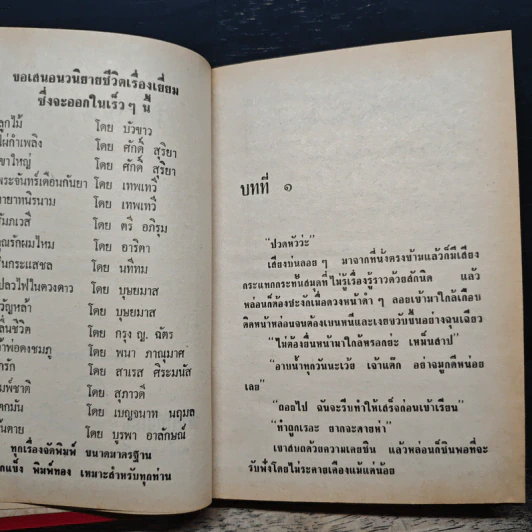 ขอเสนอนวนิยายชีวิตเรื่องเยี่ยม
ซึ่งจะออกในเร็วๆ นี้
ลูกไม้ โดย บัวขาว
ไผ่กำเพลิง โดย ศักดิ์ สุริยา
เขาใหญ่ โดย ศักดิ์ สุริยา
พระจันทร์เดือนกันยา โดย เทพเทวี
ทายาทนิรนาม โดย เทพเทวี
สัมภเวสี โดย ตรี อภิรุม
คุณรักผมไหม โดย อาริตา
โดย นทีทม
เปลวไฟในดวงดาว โดย บุษยมาส
ขวัญหล้า โดย บุษยมาส
โดย กรุง ญ. ฉัตร
โดย พนา ภาณุมาศ
โดย สาเรส ศิระมนัส
โดย สุภาวดี
โดย เบญจนาท นฤมล
โดย บูรพา อาลักษณ์
ทุกเรื่องจัดพิมพ์ ขนาดมาตรฐาน
ปกแข็ง พิมพ์ทอง เหมาะสำหรับทุกท่าน
บทที่ ๑
"ปวดหัวว่ะ"
เสียงบ่นลอยๆ มาจากที่นั่งตรงข้ามแล้วก็มีเสียง
กระแทกกระทั้นสมุดที่ไม่รู้เรื่องรู้ราวด้วยสักนิด แล้ว
หล่อนก็ต้องประงักเมื่อดวงหน้าดำๆ ลอยเข้ามาใกล้เกือบ
ติดหน้าหล่อนจนต้องเบนหนีและเงยขวับขึ้นอย่างฉุนเฉียว
"ไม่ต้องยื่นหน้ามาใกล้หรอกย่ะ เหม็นสาบ"
"อาบน้ำทุกวันนะเว้ย เจ้าแต๊ก อย่าจมูกดีหน่อย
เลย"
"ถอยไป ฉันจะรีบทำให้เสร็จก่อนเข้าเรียน"
"ทำถูกเรอะ ยากจะตายห่า"
เขาสบถด้วยความเคยชิน แล้วหล่อนก็ชินพอที่จะ
รับฟังโดยไม่ระคายเคืองแม้แต่น้อย